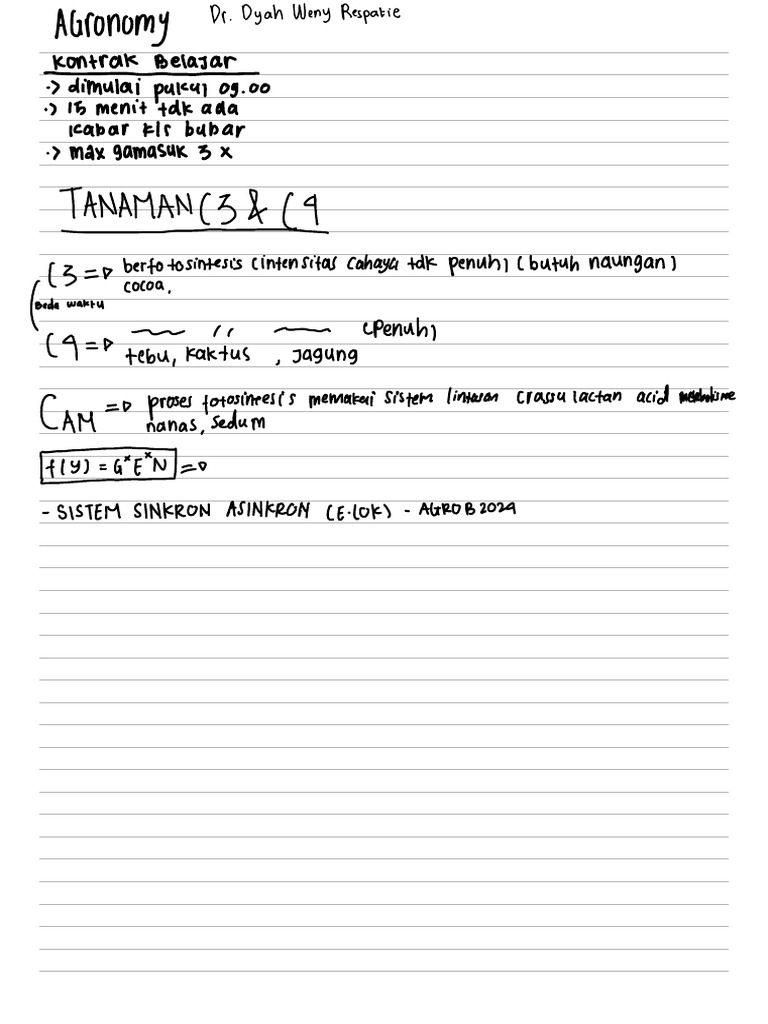 AGronomy Dr. Dyah Weny Respatie
Kontrak Belajar
-> dimulai pukul 09.00
-> 15 menit tdk ada
kabar kls bubar
-> max gamasuk 3 x
TANAMAN C3 & C4
C3 => berfotosintesis (intensitas cahaya tdk penuh) (butuh naungan)
cocoa,
Beda waktu
C4 => ~ '' ~ (penuh)
tebu, kaktus , jagung
CAM => proses fotosintesis memakai sistem lintasan crassulactan acid metabolisme
nanas, sedum
f(y) = G x E x N =>
- SISTEM SINKRON ASINKRON (E-LOK) - AGROB2024